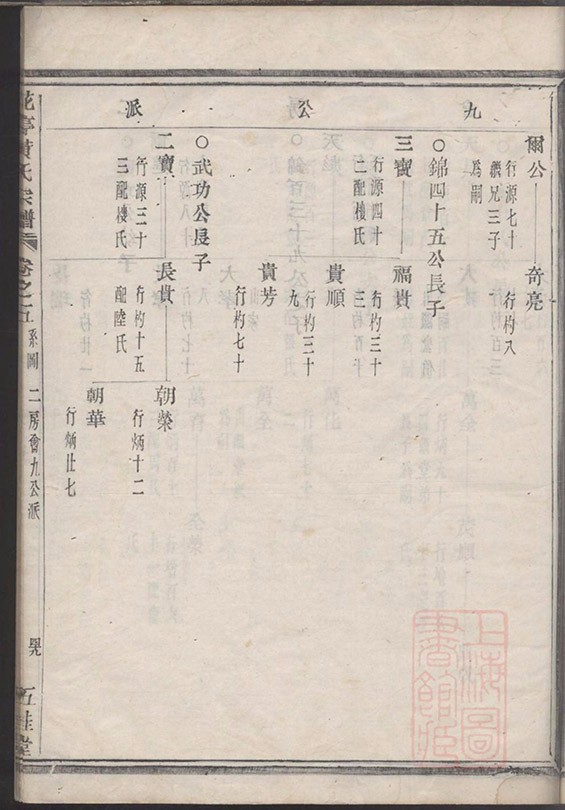 九公派
爾公
行源七十
繼兄三子
爲嗣
奇亮
行杓八
○錦四十五公長子
三寶
行源四十
二配樓氏
福貴
行杓三十
三
貴順
行杓三十
九
貴芳
行杓七十
○武功公長子
二寶
行源三十
三配樓氏
長貴
行杓十五
配陸氏
朝榮
行炳十二
朝華
行炳廿七
黃氏宗譜
卷之五
系圖
二房會九公派
五桂堂
上海圖
書館藏